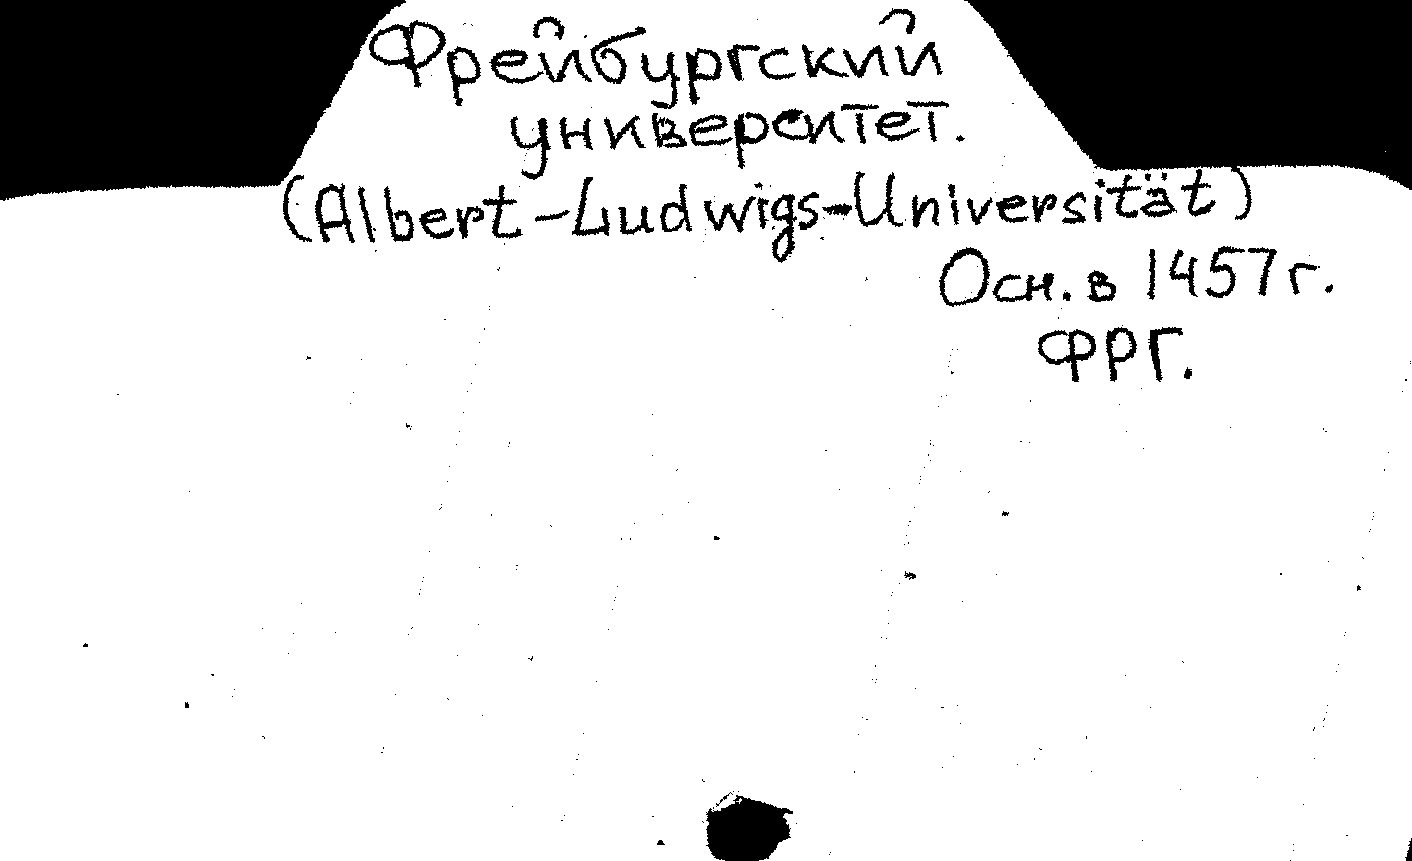 Фрейбургский
университет.
(Albert-Ludwigs-Universität)
Осн. в 1457 г.
ФРГ.